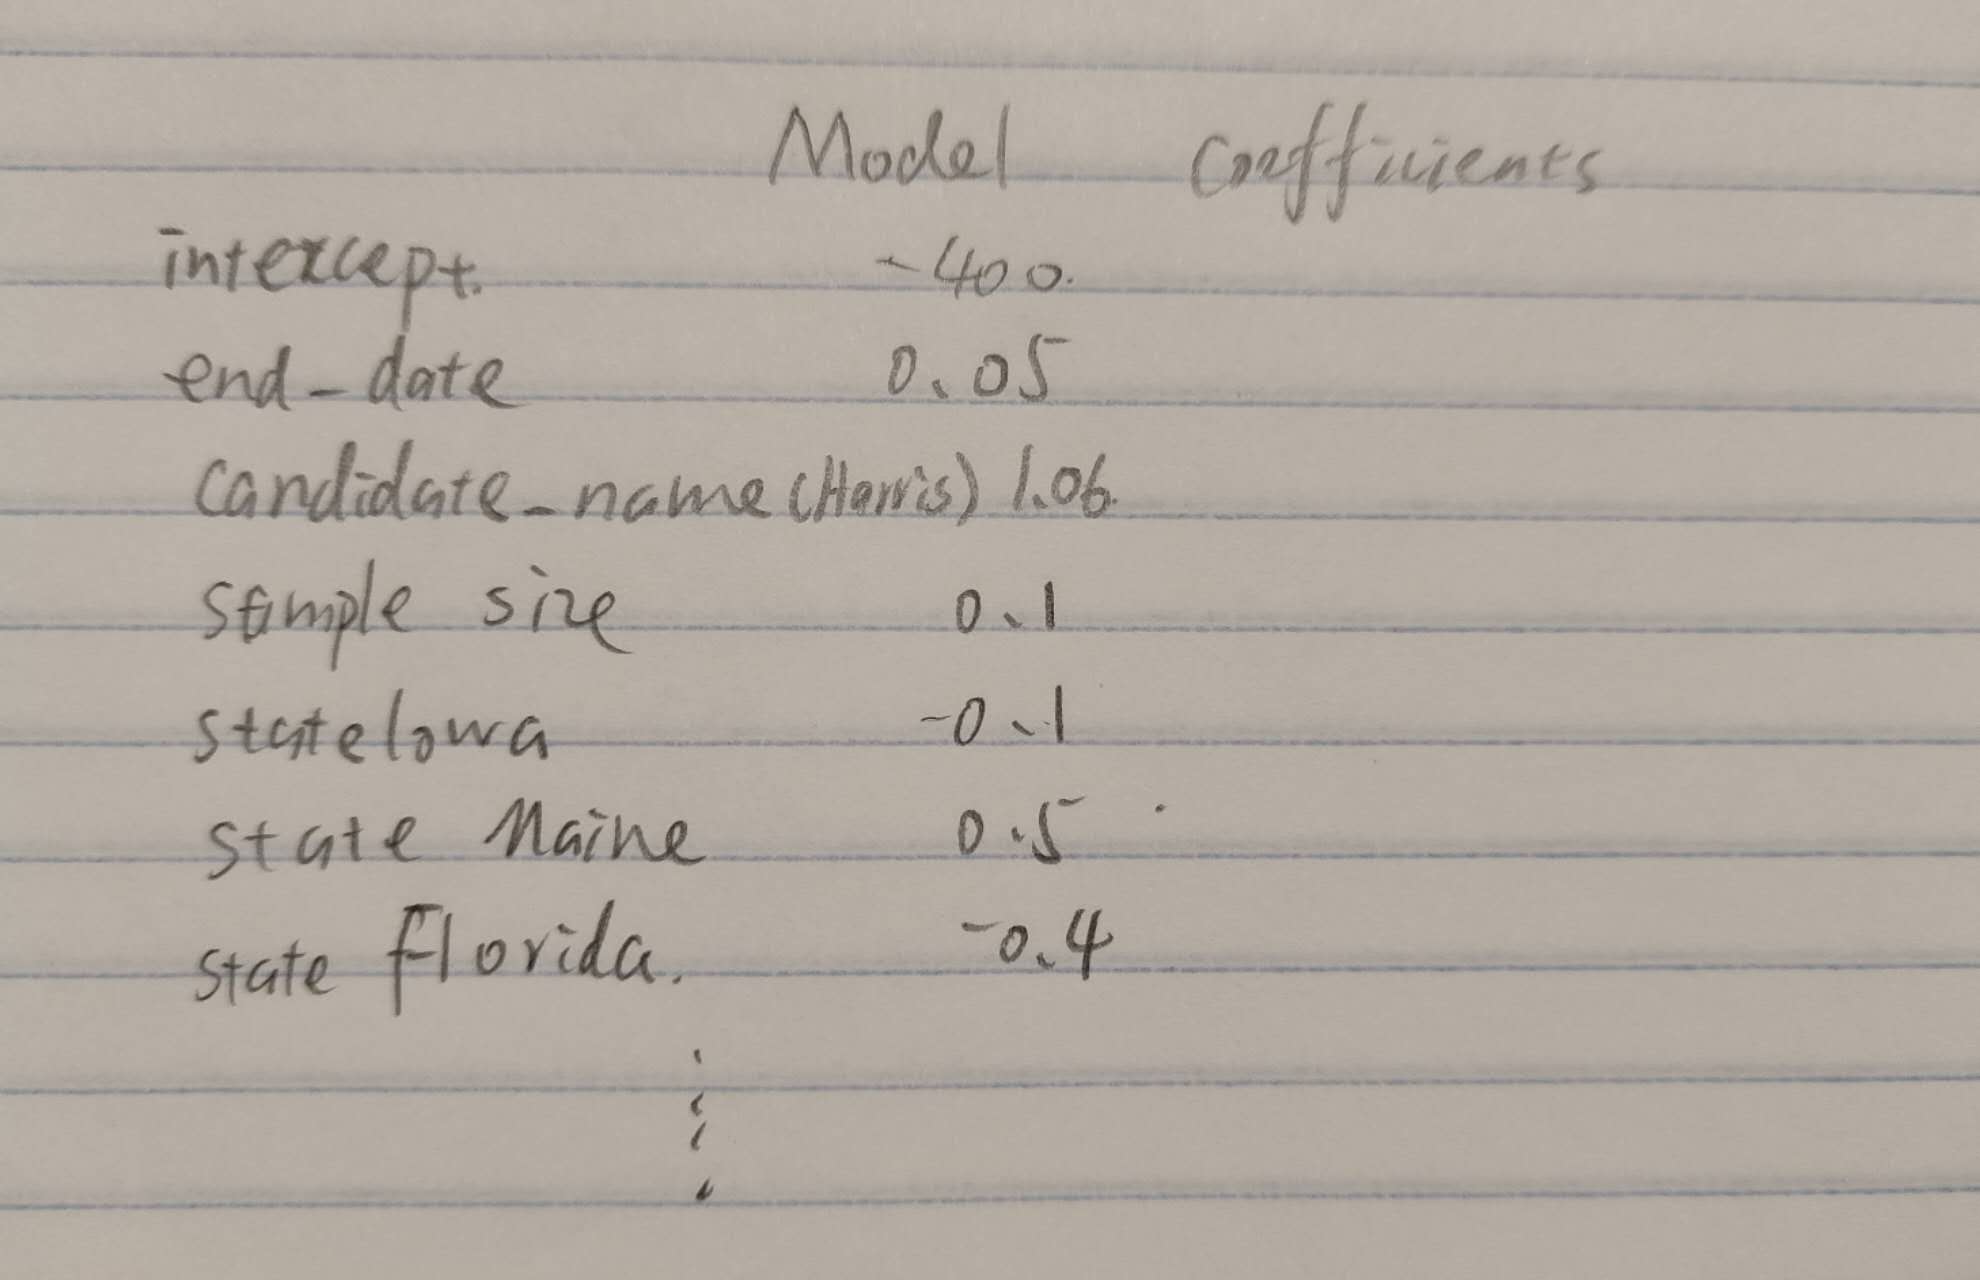 Model Coefficients
intercept. -400.
end-date 0.05
candidate-name (Harris) 1.06.
sample size 0.1
stateIowa -0.1
state Maine 0.5
state Florida. -0.4